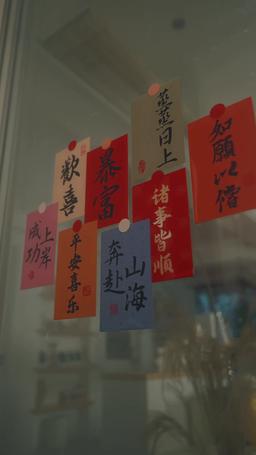 蒸蒸日上
如願以償
歡喜
暴富
诸事皆順
上岸
成功
平安喜乐
奔赴
山海